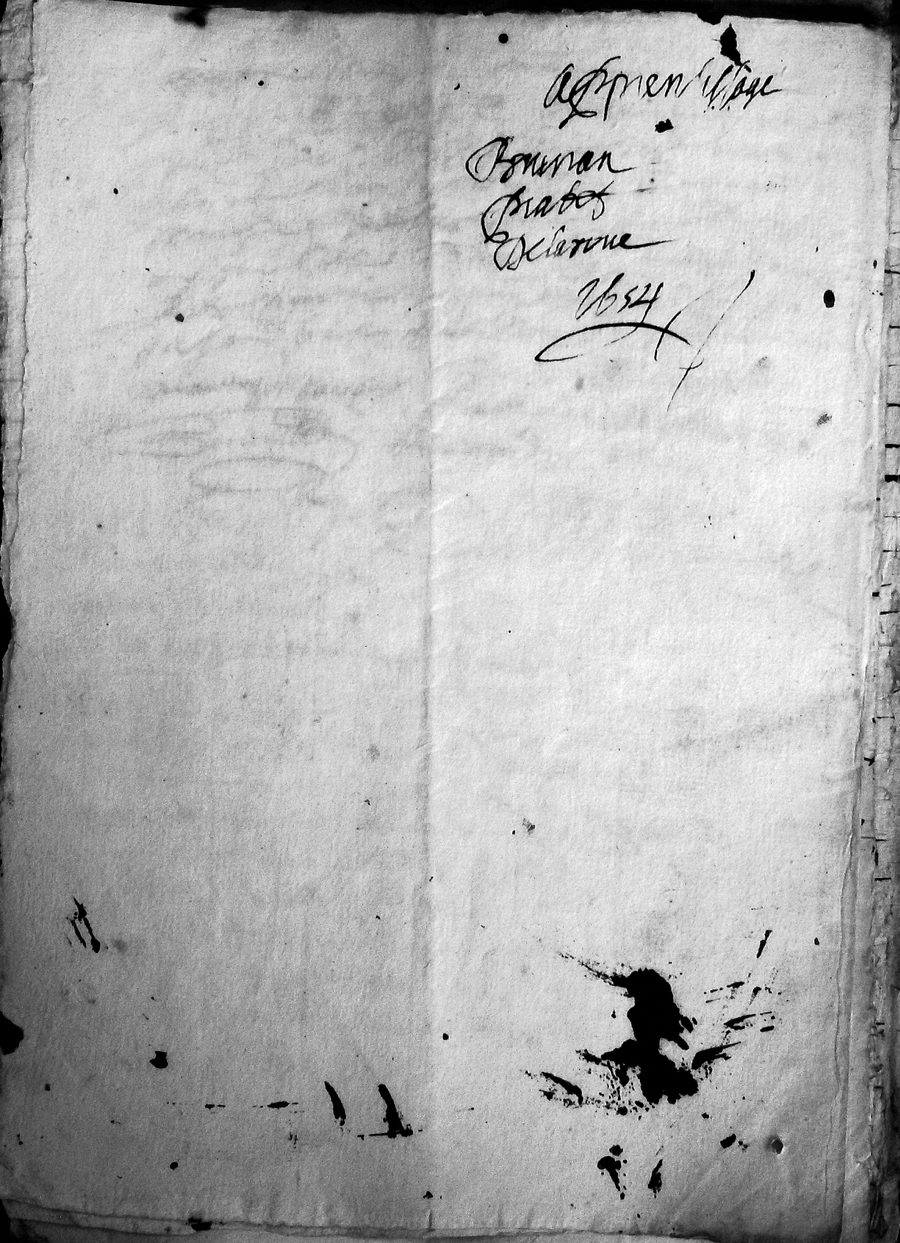 apprentissage
Brunan
prabes
Delaroue
1654